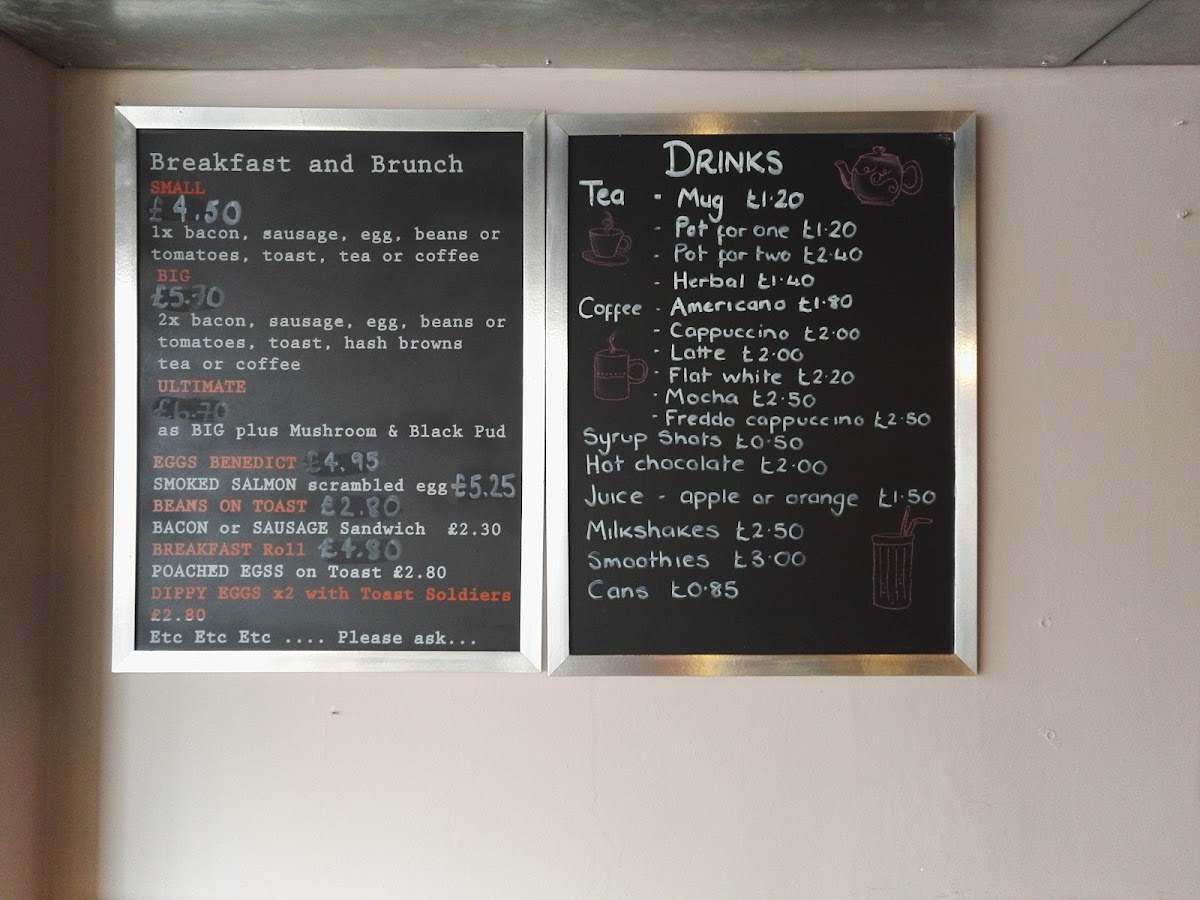 Breakfast and Brunch
SMALL
£4.50
1x bacon, sausage, egg, beans or
tomatoes, toast, tea or coffee
BIG
£5.70
2x bacon, sausage, egg, beans or
tomatoes, toast, hash browns
tea or coffee
ULTIMATE
£6.70
as BIG plus Mushroom & Black Pud
EGGS BENEDICT £4.95
SMOKED SALMON scrambled egg £5.25
BEANS ON TOAST £2.80
BACON or SAUSAGE Sandwich £2.30
BREAKFAST Roll £4.80
POACHED EGSS on Toast £2.80
DIPPY EGGS x2 with Toast Soldiers
£2.80
Etc Etc Etc .... Please ask...
DRINKS
Tea - Mug £1.20
- Pot for one £1.20
- Pot for two £2.40
- Herbal £1.40
Coffee - Americano £1.80
- Cappuccino £2.00
- Latte £2.00
- Flat white £2.20
- Mocha £2.50
- Freddo cappuccino £2.50
Syrup Shots £0.50
Hot chocolate £2.00
Juice - apple or orange £1.50
Milkshakes £2.50
Smoothies £3.00
Cans £0.85